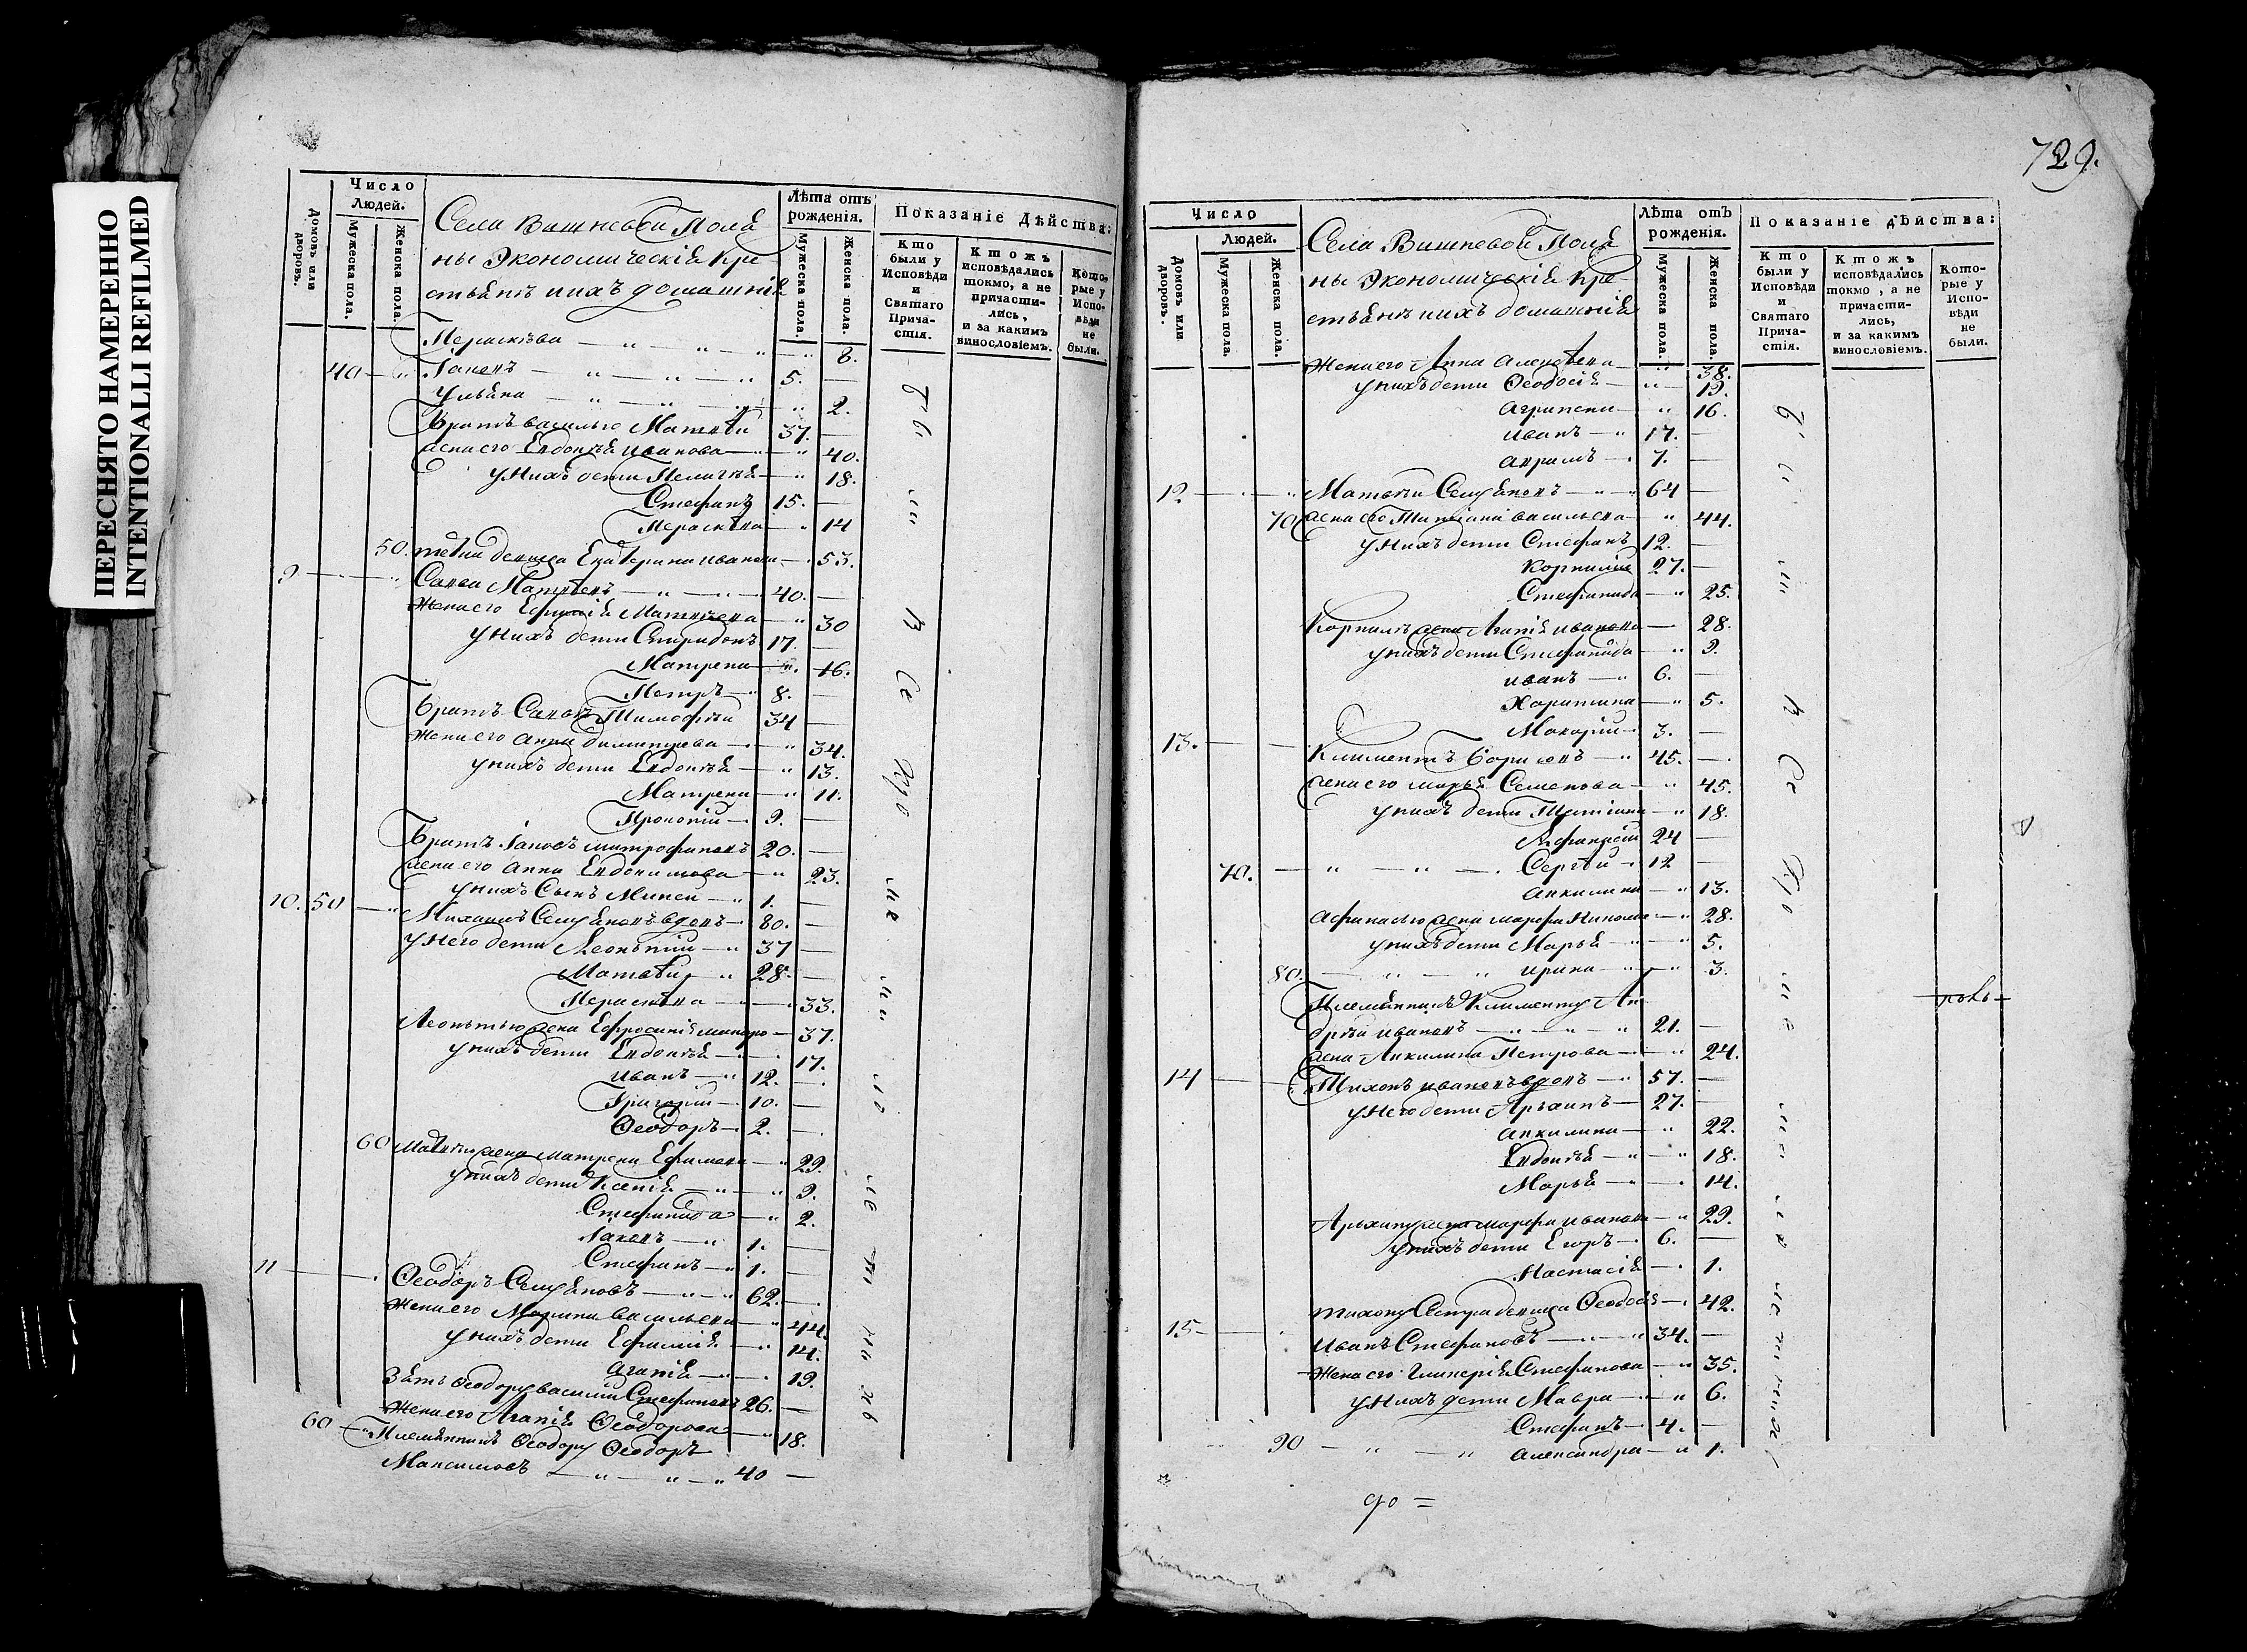 ПЕРЕСНЯТО НАМЕРЕННО
INTENTIONALLI REFILMED
Число
Людей.
Домовъ или дворовъ.
Мужеска пола.
Женска пола.
Села Вишневой Поля
ны Экономическія Кре
стьянѣ ихъ домашнія
Лѣта отъ
рожденія.
Мужеска пола.
Женска пола.
Показаніе Дѣйства:
Кто
были у
Исповѣди
и
Святаго
Прича-
стія.
Ктожъ
исповѣдались
токмо, а не
причасти-
лись,
и за какимъ
винословіемъ.
Кото-
рые у
Испо-
вѣди
не
были.
Параскѣва 8.
40 Іаковъ 5.
Ульяна 2.
Братъ Василью Матвѣй 37.
жена его Евдокія Иванова 40.
у Нихъ дети Пелагѣя 18.
Стефанъ 15.
Параскѣва 14
50. девица Екатерина Иванова 53.
9 Савва Матвѣевъ 40.
Жена его Ефимія Матвѣева 30
у нихъ дети Спиридонъ 17.
Матрена 16.
Петръ 8.
Братъ Саввѣ Тимофѣй 34
жена его Анна Димитрева 34.
у нихъ дети Евдокѣя 13.
Матрена 11.
Прокопій 9.
Братъ Іаковъ Митрофановъ 20.
жена его Анна Евдокимова 23.
у нихъ Сынъ Минѣй 1.
10. 50 Михаилъ Семяновъ вдовъ 80.
у Него дети Леонтій 37
Матвѣй 28.
Параскѣва 33.
Леонтью жена Ефросинія 37.
у нихъ дети Евдокѣя 17.
Иванъ 12.
Григорій 10.
Ѳеодоръ 2.
60 Матвѣю жена Матрена Ефимова 29.
у нихъ дети Ксенія 9.
Стефанида 2.
Іаковъ 1.
Стефанъ 1.
11 Ѳеодоръ Семяновъ 62.
Жена его Марина Васильева 44.
у нихъ дети Ефимія 14.
Агапія 19.
Зять Ѳеодору Василій Стефановъ 26.
Жена его Агапія Ѳеодорова 18.
60 Племянникъ Ѳеодору Ѳеодоръ
Максимовъ 40
729.
Число
Людей.
Домовъ или дворовъ.
Мужеска пола.
Женска пола.
Села Вишневой Поля
ны Экономическія Кре
стьянѣ ихъ домашнія
Лѣта отъ
рожденія.
Мужеска пола.
Женска пола.
Показаніе дѣйства:
Кто
были у
Исповѣди
и
Святаго
Прича-
стія.
Ктожъ
исповѣдались
токмо, а не
причасти-
лись,
и за какимъ
винословіемъ.
Кото-
рые у
Испо-
вѣди
не
были.
Жена его Анна Алексѣева 38.
у нихъ дети Ѳеодосія 19.
Агрипена 16.
Иванъ 17.
7.
12. Матвѣй Семяновъ 64
70 жена его Татіана Васильева 44.
у Нихъ дети Стефанъ 12.
Корнилій 27.
Стефанида 25.
жена Агапія Иванова 28.
у нихъ дети Стефанида 9.
Иванъ 6.
Харитина 5.
Макарій 3.
13. Климентъ Борисовъ 45.
жена его Марья Семенова 45.
у нихъ дети Татіана 18.
Афанасій 24
70. Сергѣй 12
Акилина 13.
Афанасью жена Марфа 28.
у нихъ дети Марья 5.
80. Ирина 3.
Племянникъ Клименту Ан
дрѣй Ивановъ 21.
жена Акилина Петрова 24.
14 Тихонъ Ивановъ вдовъ 57.
у Него дети Архипъ 27.
Акилина 22.
Евдокѣя 18.
Марья 14.
Архипу жена Марфа Иванова 29.
у нихъ дети Егоръ 6.
Настасія 1.
Тихону Сестра девица Ѳеодосія 42.
15 Иванъ Стефановъ 34.
Жена его Гликерія Стефанова 35.
у Нихъ дети Мавра 6.
Стефанъ 4.
90 Александра 1.
90 =